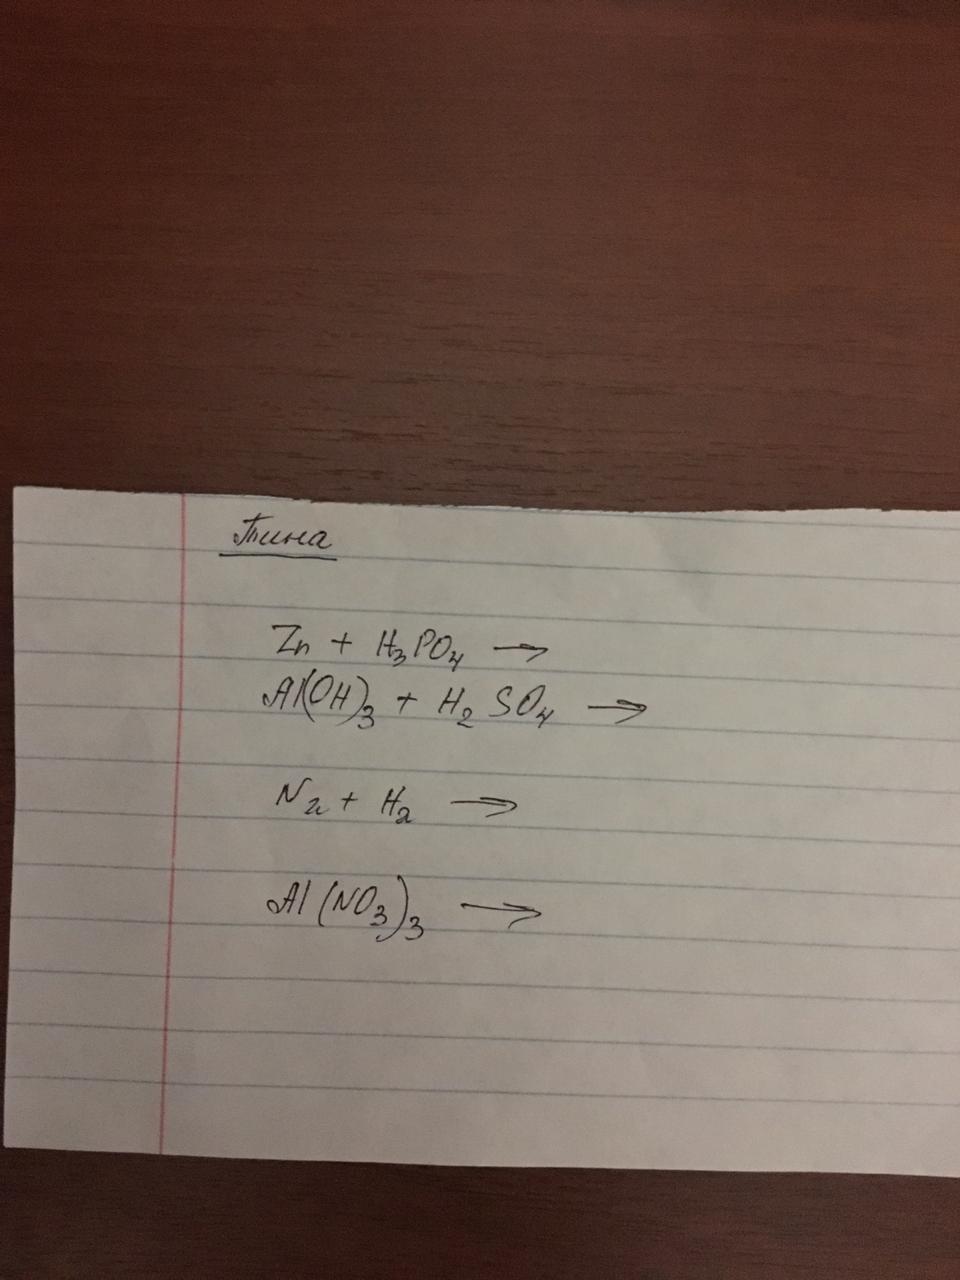 Тина
Zn + H₃PO₄ →
Al(OH)₃ + H₂SO₄ →
N₂ + H₂ →
Al(NO₃)₃ →